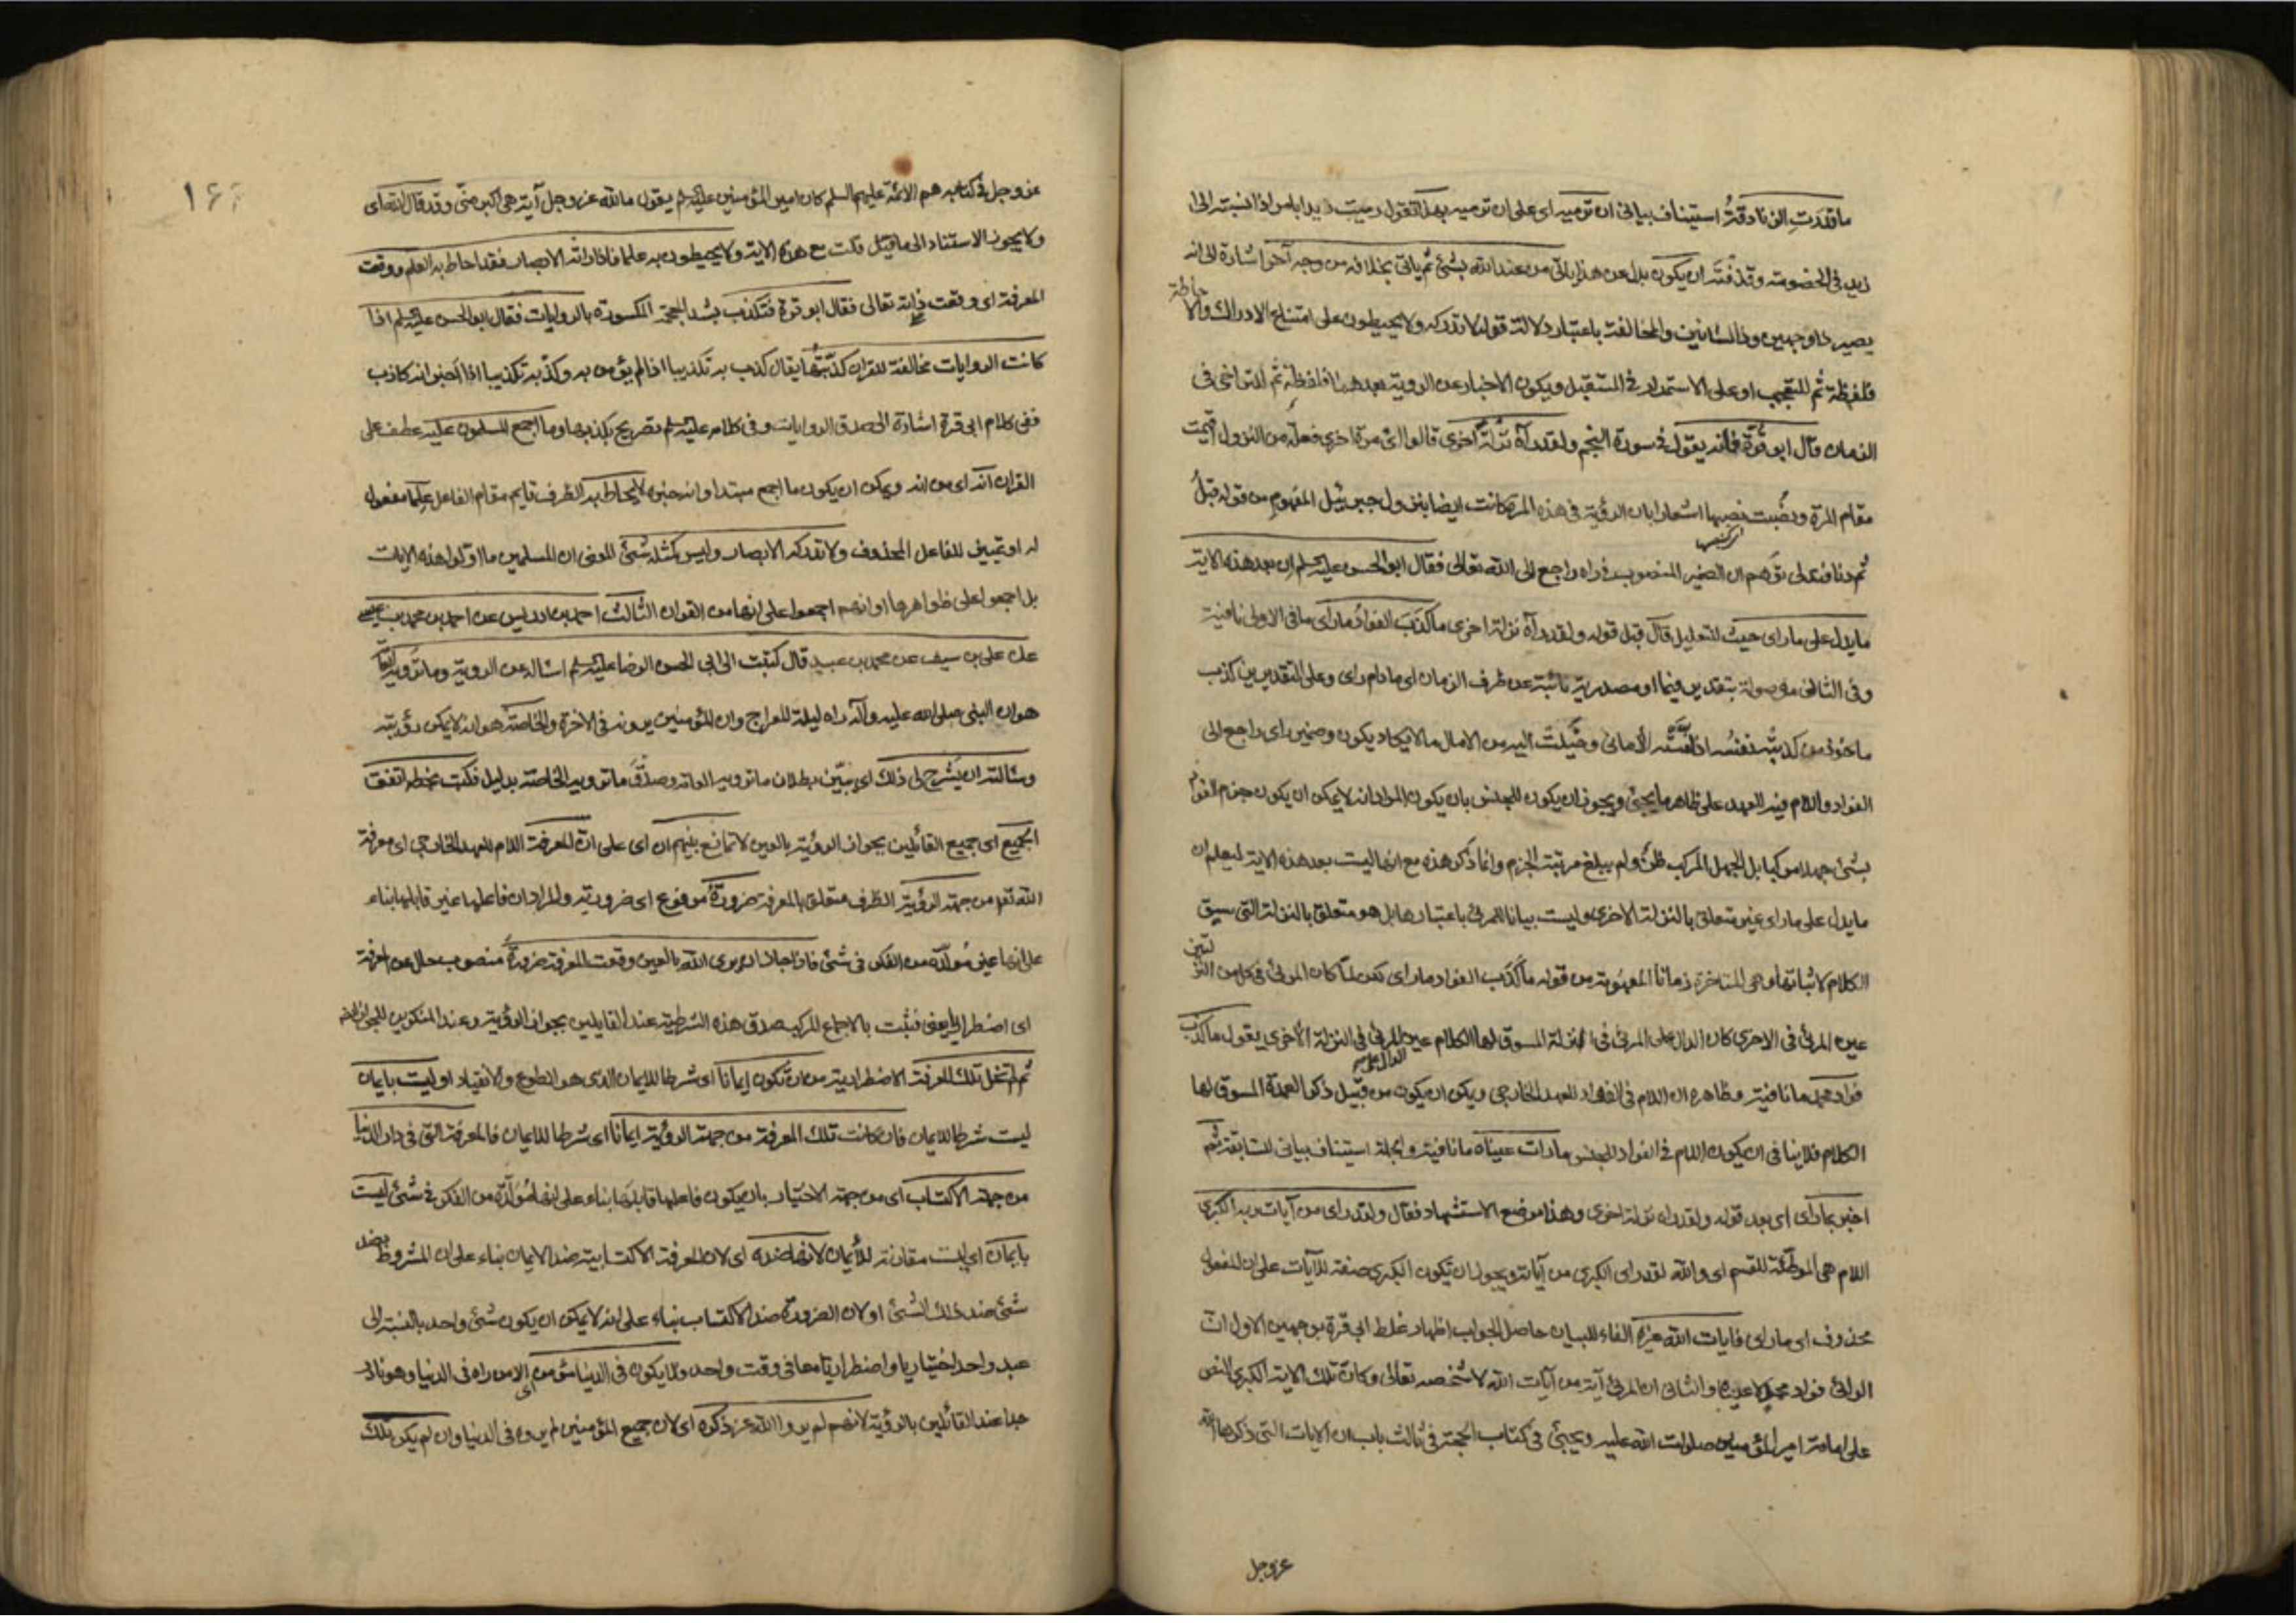 ما قدرت الزنادقة استيناف بياني ان ترميه اي على ان ترميه بهذا تقول رميت زيدا بامر اذا نسبته الى
زيد في الخصومة وقذفته ان يكون بدل عن هذا ياتي من عند الله بشئ ثم ياتي بخلافه من وجه آخر اشارة الى انه
يصير ذا وجهين وذا لسانين والمخالفة باعتبار دلالة قوله لا تدركه ولا يحيطون على امتناع الادراك والاحاطة
فلفظة ثم للتعجب او على الاستمرار في المستقبل ويكون الاخبار عن الروية بعدهما فلفظة ثم للتراخي في
الزمان قال ابو قرة فانه يقول في سورة النجم ولقد رآه نزلة اخرى قالوا اي مرة اخرى فعلة من النزول اقيمت
مقام المرة ونصبت نصبها اشعارا بان الرؤية في هذه المرة كانت ايضا بنزول جبرئيل المفهوم من قوله قبل
ثم دنا فتدلى توهم ان الضمير المنصوب في راه راجع الى الله تعالى فقال ابو الحسن عليه السلم ان بعد هذه الاية
ما يدل على ما راى حيث للتعليل قال قبل قوله ولقد رآه نزلة اخرى ما كذب الفواد ما راى ما في الاولى نافية
وفي الثاني موصولة بتقدير فيما او مصدرية نائبة عن ظرف الزمان اي ما دام راى وعلى التقديرين كذب
ماخوذ من كذبته نفسه اذا منته الأماني وخيلت اليه من الامال ما لا يكاد يكون وضمير راى راجع الى
الفواد واللام فيه للعهد على ظاهر ما يجئ ويجوز ان يكون للجنس بان يكون المراد انه لا يمكن ان يكون جزم الفواد
بشئ جهلا مركبا بل الجهل المركب ظن ولم يبلغ مرتبة الجزم وانما ذكر هذه مع انها ليست بعد هذه الاية ليعلم ان
ما يدل على ما راى غير متعلق بالنزلة الاخرى وليست بيانا للمرئي باعتبارها بل هو متعلق بالنزلة التي سيق
الكلام لاثباتها وهي المتاخرة زمانا المفهومة من قوله ما كذب الفواد ما راى لكن لما كان المرئي في كل من النزلتين
عين المرئي في الاخرى كان الدال على المرئي في النزلة المسوق لها الكلام عين الدال على المرئي في النزلة الأخرى يقول ما كذب
فواد محمد ما نافية وظاهره ان اللام في الفواد للعهد الخارجي ويمكن ان يكون من قبيل ذكر العمدة المسوق لها
الكلام فلا ينافي ان يكون اللام في الفواد للجنس ما رات عيناه ما نافية والجملة استيناف بياني للسابقة ثم
اخبر بما راى اي بعد قوله ولقد راه نزلة اخرى وهذا موضع الاستشهاد فقال ولقد راى من آيات ربه الكبرى
اللام هي الموطئة للقسم اي والله لقد راى الكبرى من آياته ويجوز ان تكون الكبرى صفة للآيات على ان المفعول
محذوف اي ما راى فايات الله غيره الفاء للبيان حاصل الجواب اظهار غلط ابي قرة بوجهين الاول ان
الرائي فواد محمد لا عيناه والثاني ان المرئي آية من آيات الله لا شخصه تعالى وكان تلك الاية الكبرى النص
على امامة امير المؤمنين صلوات الله عليه ويجئ في كتاب الحجة في ثالث باب ان الايات التي ذكرها الله
عز وجل
١٦
عز وجل في كتابه هم الائمة عليهم السلم كان امير المؤمنين عليه السلم يقول ما لله عز وجل آية هي اكبر مني وقد قال الله اي
ولا يجوز الاستناد الى ما قيل فكت مع هذه الاية ولا يحيطون به علما فاذا راته الابصار فقد احاط به العلم ووقعت
المعرفة اي وقعت ذاته تعالى فقال ابو قرة فتكذب بشد المعجمة المكسورة بالروايات فقال ابو الحسن عليه السلم اذا
كانت الروايات مخالفة للقران كذبتها يقال كذب به تكذيبا اذا لم يؤمن به وكذبه تكذيبا اذا اخبر انه كاذب
ففي كلام ابي قرة اشارة الى صدق الروايات وفي كلامه عليه السلم تصريح بكذبها وما اجمع المسلمون عليه عطف على
القران انه اي من انه ويمكن ان يكون ما اجمع مبتدا وانه خبره لا يحاط به الظرف قايم مقام الفاعل علما مفعول
له او تمييز للفاعل المحذوف ولا تدركه الابصار وليس كمثله شئ المعنى ان المسلمين ما اولوا هذه الايات
بل اجمعوا على ظواهرها او انهم اجمعوا على انها من القران الثالث احمد بن ادريس عن احمد بن محمد بن عيسى
عن علي بن سيف عن محمد بن عبيد قال كتبت الى ابي الحسن الرضا عليه السلم اساله عن الروية وما ترويه العامة
هو ان النبي صلى الله عليه وآله راه ليلة المعراج وان المؤمنين يرونه في الاخرة والخاصة هو انه لا يمكن رؤيته
وسالته ان يشرح لي ذلك اي يبين بطلان ما ترويه العامة وصدق ما ترويه الخاصة بدليل فكتب بخطه اتفق
الجميع اي جميع القائلين بجواز الرؤية بالعين لا تمانع بينهم ان اي على ان المعرفة اللام للعهد الخارجي اي معرفة
الله تعالى من جهة الرؤية الظرف متعلق بالمعرفة ضرورة مرفوع اي ضرورية والمراد ان فاعلها غير قابلها بناء
على انها غير مولدة من الفكر في شئ فاذا جاز ان يرى الله بالعين وقعت المعرفة ضرورة منصوب حال عن المعرفة
اي اضطرارا يعني فثبت بالاجماع المركب صدق هذه الشرطية عند القايلين بجواز الرؤية وعند المنكرين للجواز
ثم لم تخل تلك المعرفة الاضطرارية من ان تكون إيمانا اي شرطا للايمان الذي هو الطوع والانقياد او ليست بايمان
ليست شرطا للايمان فان كانت تلك المعرفة من جهة الرؤية ايمانا اي شرطا للايمان فالمعرفة التي في دار الدنيا
من جهة الاكتساب اي من جهة الاختيار بان يكون فاعلها قابلها بناء على انها مولدة من الفكر في شئ ليست
بايمان اي ليست مقارنة للأيمان لانها ضده اي لان المعرفة الاكتسابية ضد الايمان بناء على ان المشروط بضد
شئ ضد ذلك الشئ او لان الضرورة ضد الاكتساب بناء على انه لا يمكن ان يكون شئ واحد بالنسبة الى
عبد واحد اختياريا واضطراريا معا في وقت واحد ولا يكون في الدنيا مؤمن اي الا من راه في الدنيا وهو نادر
جدا عند القائلين بالرؤية لانهم لم يروا الله عز ذكره اي لان جميع المؤمنين لم يروه في الدنيا وان لم يكن تلك